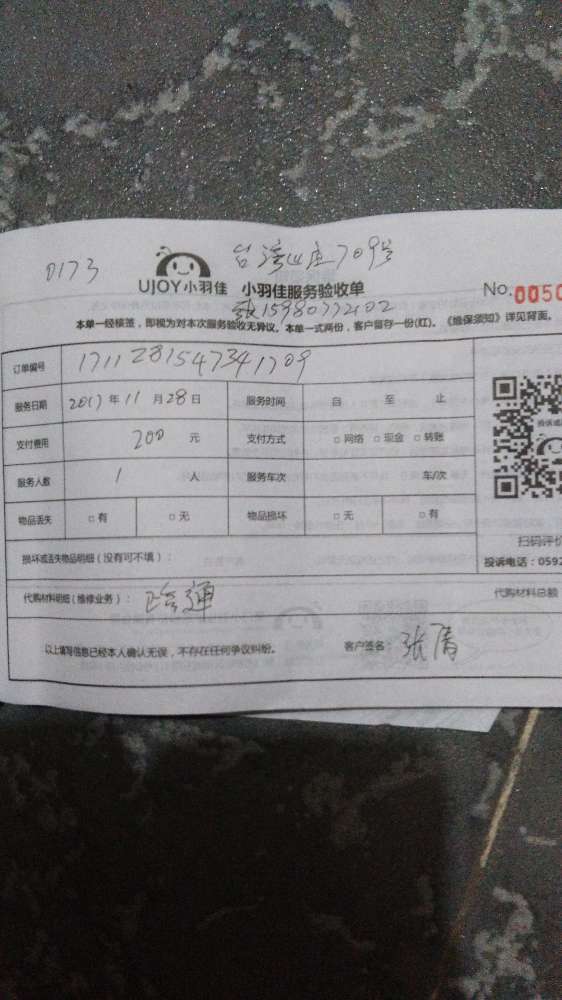 0173
台湾山庄709号
UJOY小羽佳 小羽佳服务验收单
No.0050
15980772102
本单一经核签，即视为对本次服务验收无异议。本单一式两份，客户留存一份(红)。《维保须知》详见背面。
订单编号 1711281547341709
服务日期 2017年11月28日 服务时间 自 至 止
支付费用 200 元 支付方式 □网络 □现金 □转账
服务人数 1 人 服务车次 车/次
物品丢失 □有 □无 物品损坏 □无 □有
扫码评价
损坏或丢失物品明细（没有可不填）：
投诉电话：0592
代购材料明细（维修业务）： 通
代购材料总额
以上填写信息已经本人确认无误，不存在任何争议纠纷。 客户签名： 张